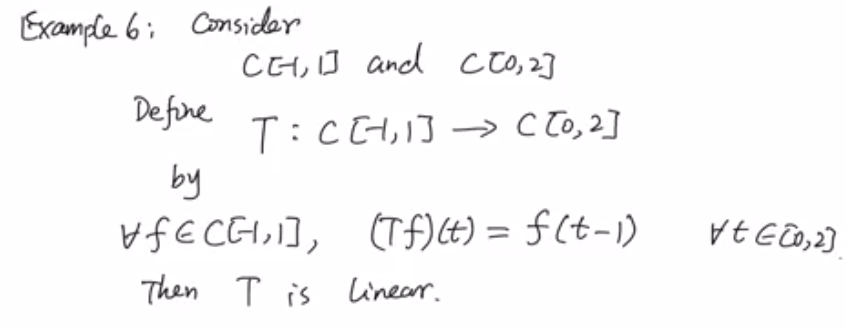 Example 6: Consider
C[-1,1] and C[0,2]
Define T : C[-1,1] → C[0,2]
by
∀f∈C[-1,1], (Tf)(t) = f(t-1) ∀t∈[0,2].
Then T is linear.